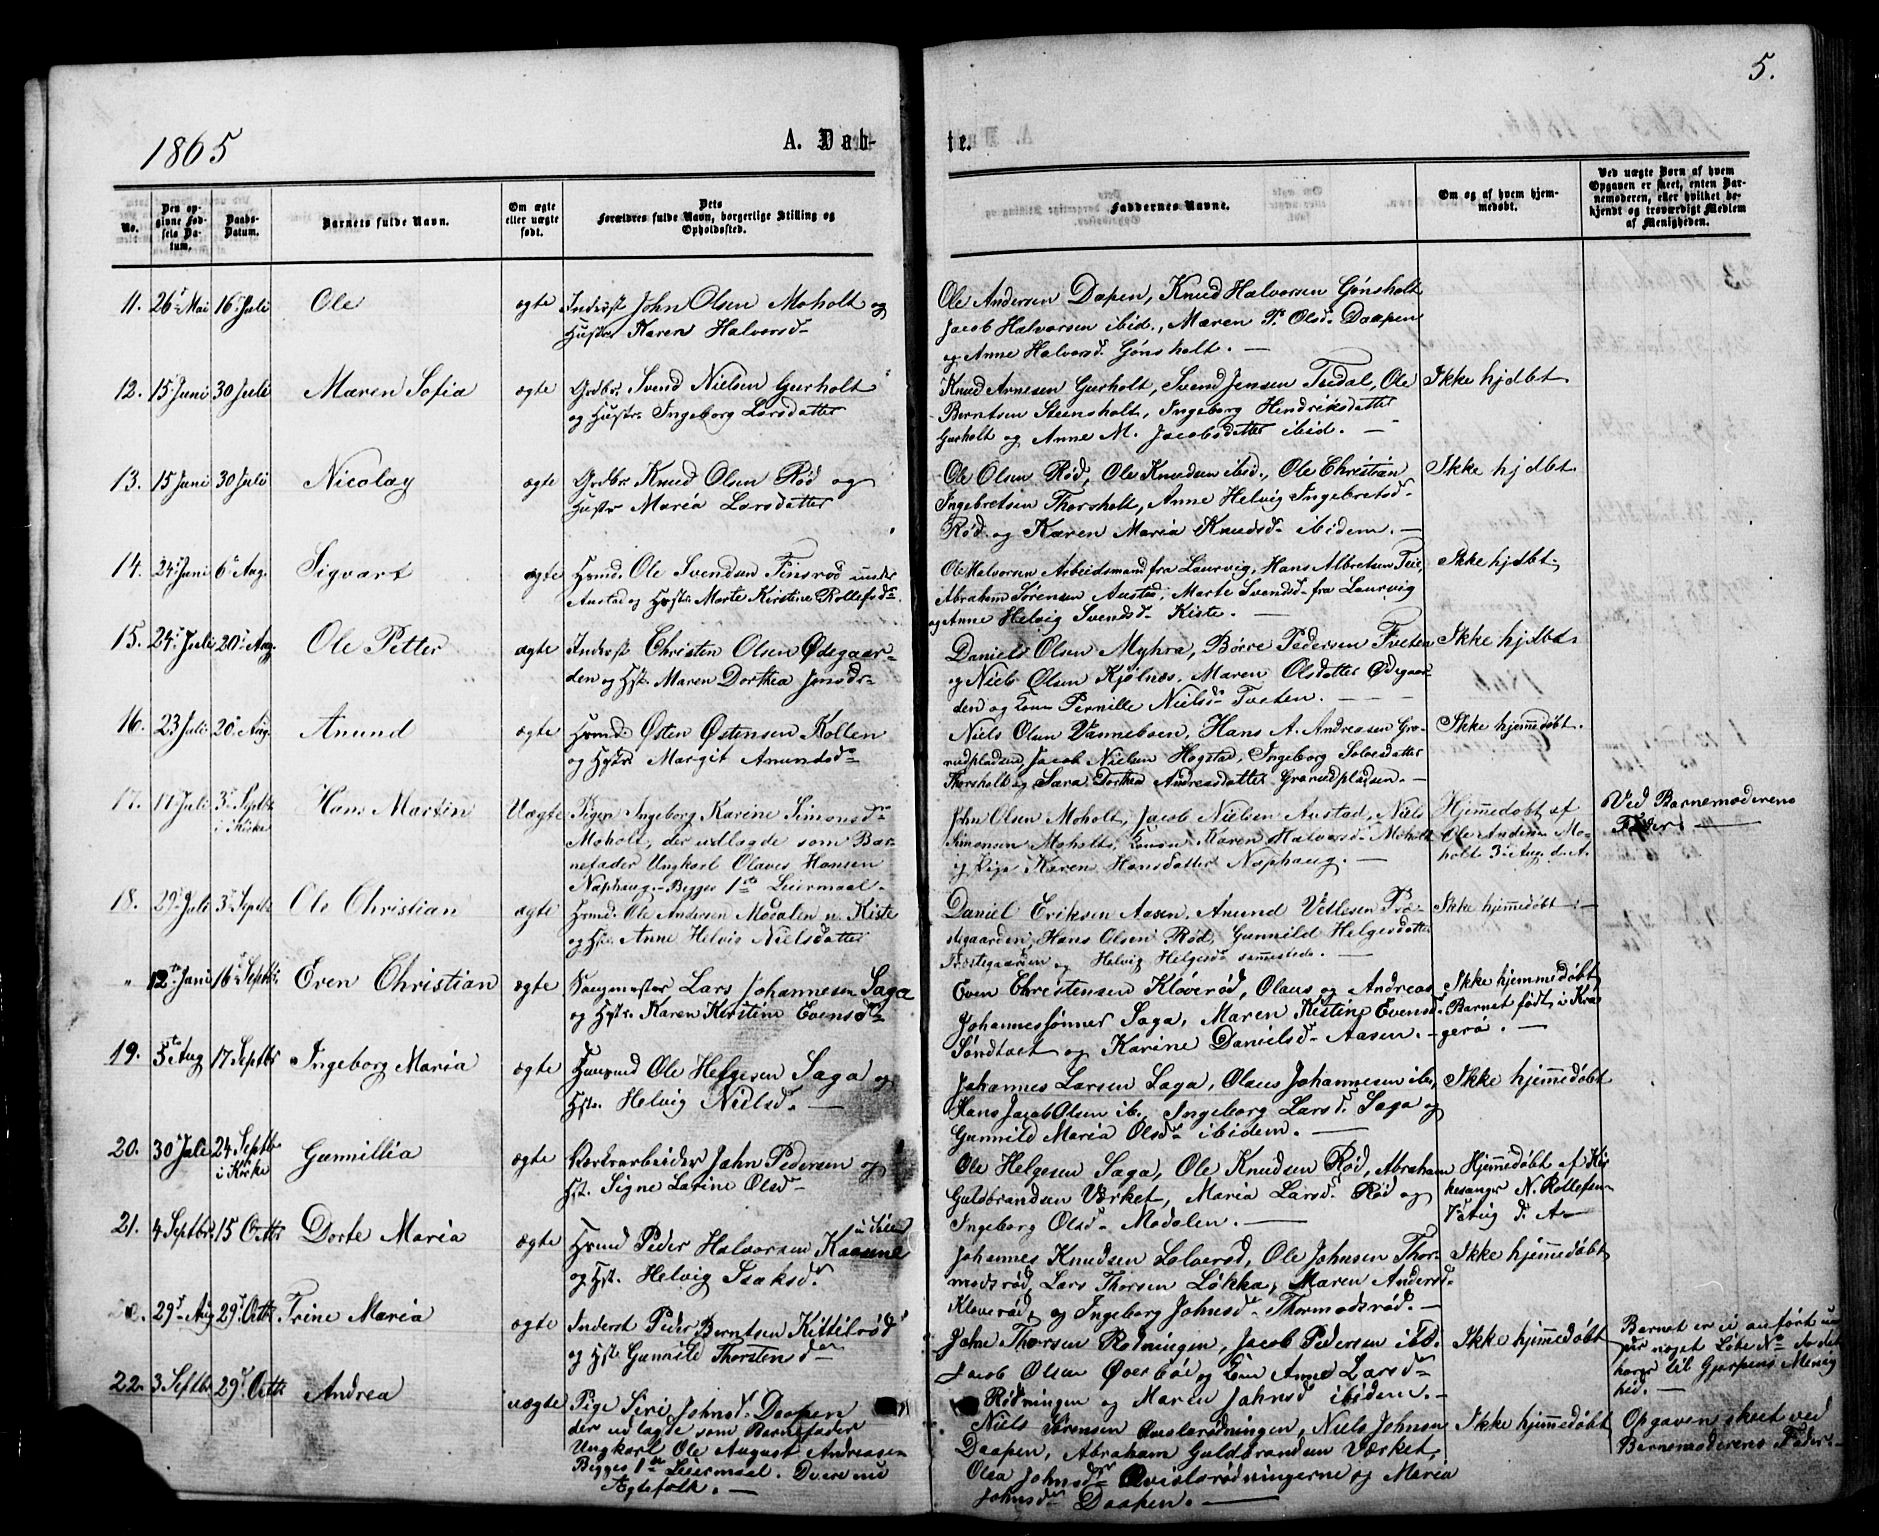 5.
1865
A. Døb-
te.
No.
Den op-
givne Fød-
sels Da-
tum.
Daabs-
Datum.
Barnets fulde Navn.
Om ægte
eller uægte
født.
Dets
Forældres fulde Navn, borgerlige Stilling og
Opholdssted.
Faddernes Navne.
Om og af hvem hjem-
medøbt.
Ved uægte Børn af hvem
Opgaven er skeet, enten Bar-
nemoderen, eller hvilket be-
kjendt og troværdigt Medlem
af Menigheden.
11. 26 Mai 16 Juli Ole ægte Inderst John Olsen Moholt og
Hustr. Karen Halvorsd.
Ole Andersen Dapen, Knud Halvorsen Gønsholt
Jacob Halvorsen ibid., Maren P. Olsd. Daapen
og Anne Halvorsd. Gønsholt. —
12. 15 Juni 30 Juli Maren Sofia ægte Grdbr. Svend Nielsen Gurholt
og Hustr. Ingeborg Larsdatter
Knud Arnesen Gurholt, Svend Jensen Tvedal, Ole
Berntsen Steensholt, Ingeborg Hendriksdatter
Gurholt og Anne M. Jacobsdatter ibid. —
Ikke hjdbt
13. 15 Juni 30 Juli Nicolay ægte Grdbr. Knud Olsen Rød og
Hustr. Maria Larsdatter
Ole Olsen Rød, Ole Knudsen ibid., Ole Christian
Ingebretsen Thorsholt, Anne Helvig Ingebretsd.
Rød og Karen Maria Knudsd. ibidem. —
Ikke hjdbt
14. 24 Juni 6 Aug. Sigvart ægte Husmd. Ole Svendsen Finsrød under
Austad og Hustr. Marte Kirstine Rollefsd.
Ole Halvorsen Arbeidsmand fra Laurvig, Hans Albretsen Teie,
Abraham Sørensen Austad, Marte Svendsd. fra Laurvig
og Anne Helvig Svendsd. Kiste. —
Ikke hjdbt
15. 24 Juli 20 Aug. Ole Petter ægte Inderst Christen Olsen Ødegaar-
den og Hst. Maren Dorthea Jensdr.
Daniels Olsen Myhra, Børre Pedersen Tveten
og Niels Olsen Kjølnes, Maren Olsdatter Ødegaar-
den og Kone Pernille Nielsd. Tveten. —
Ikke hjdbt
16. 23 Juli 20 Aug. Anund ægte Husmd. Østen Østensen Kollen
og Hstr. Margit Anundsd.
Niels Olsen Vanneboen, Hans A. Andreasen Gra-
nudpladsen, Jacob Nielsen Hogstad, Ingeborg Solvesdatter
Thorsholt og Sara Dorthea Andreasdatter Granudpladsen. —
Ikke hjemmedøbt.
17. 17 Juli 3 Septbr
i Kirke Hans Martin Uægte Pigen Ingeborg Karine Simonsd.
Moholt, der udlagde som Bar-
nefader Ungkarl Olaves Hansen
Naphaug. – Begges 1ste Leiermaal.
John Olsen Moholt, Jacob Nielsen Austad, Niels
Simonsen Moholt, Konen Karen Halvorsd. Moholt
og Pige Karen Hansdatter Naphaug. —
Hjemmedøbt af
Ole Andersen Mo-
holt 3 Aug. d. A.
Ved Barnemoderens
Fader. —
18. 29 Juli 3 Septbr Ole Christian ægte Husmd. Ole Andersen Modalen u. Kiste
og Hst. Anne Helvig Nielsdatter
Daniel Eriksen Aasen, Anund Vetlesen Præ-
stegaarden, Hans Olsen Rød, Gunnild Helgesdatter
Præstegaarden og Helvig Helgesd. sammesteds. —
Ikke hjemmedøbt —
" 12te Juni 16 Septbr Even Christian ægte Lars Johannesen Saga
og Hstr. Karen Kirstine Evensd.
Even Christensen Kløverød, Olaus og Andreas
Johannessønner Saga, Maren Kistine Evensd.
Søndtvet og Karine Danielsd. Aasen. —
Ikke hjemmedøbt
Barnet født i Kra-
gerø. —
19. 5te Aug 17 Septbr Ingeborg Maria ægte Huusmd Ole Helgesen Saga og
Hst. Helvig Nielsd. —
Johannes Larsen Saga, Olaus Johannesen ib.,
Hans Jacob Olsen ib., Ingeborg Larsd. Saga og
Gunnild Maria Olsd. ibidem. —
Ikke hjemmedøbt
20. 30 Juli 24 Septbr
i Kirke Gunnillia ægte Værksarbeider John Pedersen og
Hst. Signe Larine Olsd.
Ole Helgesen Saga, Ole Knudsen Rød, Abraham
Guldbrandsen Værket, Maria Larsd. Rød og
Ingeborg Olsd. Modalen. —
Hjemmedøbt af Kir-
kesanger N. Rollefsen
7 Aug d. A.
21. 4 Septbr. 15 Octbr Dorte Maria ægte Husmd Peder Halvorsen
og Hst. Helvig Isaksd.
Johannes Knudsen Lolverød, Ole Johnsen Thor-
modsrød, Lars Thorsen Løkka, Maren Andersd.
Kloverød, og Ingeborg Johnsd. Thormodsrød. —
Ikke hjemmedøbt
29 Aug 29 Octbr. Trine Maria ægte Inderst Peder Berntsen Kittilrød
og Hst Gunnild Thorstensd.
John Thorsen Rødningen, Jacob Pedersen ibd.
Jacob Olsen Øverbøe og Kone Anne Larsd.
Rødningen og Maren Johnsd ibidem. —
Ikke hjemmedøbt
Barnet er ei anført un-
der noget Løbe No. da det
hører til Gjerpens Menig-
hed. —
22. 3 Septbr 29 Octbr Andrea uægte Pige Siri Johnsd. Daapen
der udlagde som Barnefader
Ungkarl Ole August Andreasen
Begges 1ste Leiermaal. Dvere nu
Ægtefolk. —
Niels Sørensen Qvislerødningen, Niels Johnsen
Daapen, Abraham Guldbrandsen Værket,
Olea Johnsd. Qvislerødningerne og Maria
Johnsd. Daapen. —
Ikke hjemmedøbt
Opgaven skeet ved
Barnemoderens Fader. —